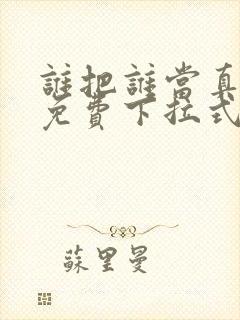 誰把誰當真
免費下拉式
蘇里曼